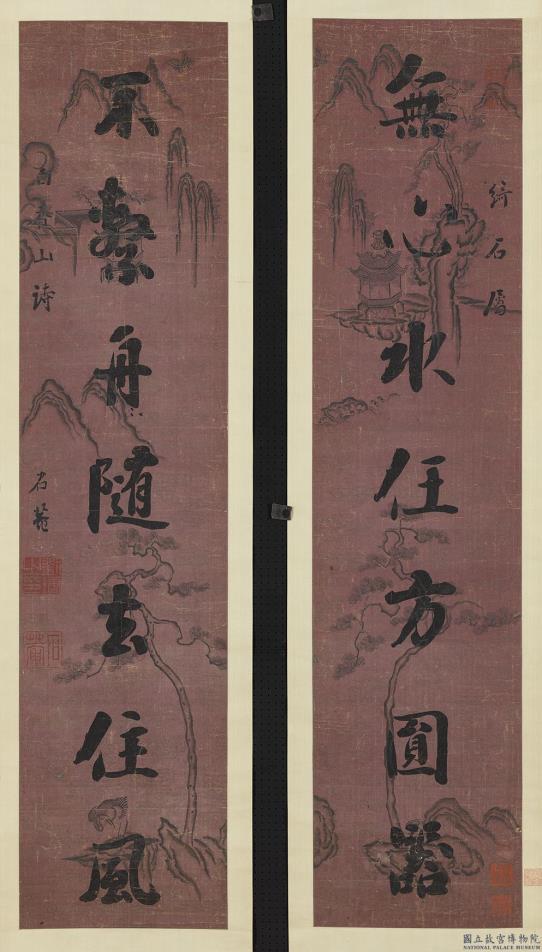 無心水任方圓器
石屬
不繫舟隨去住風
白香山詩
石菴
國立故宮博物院
NATIONAL PALACE MUSEUM